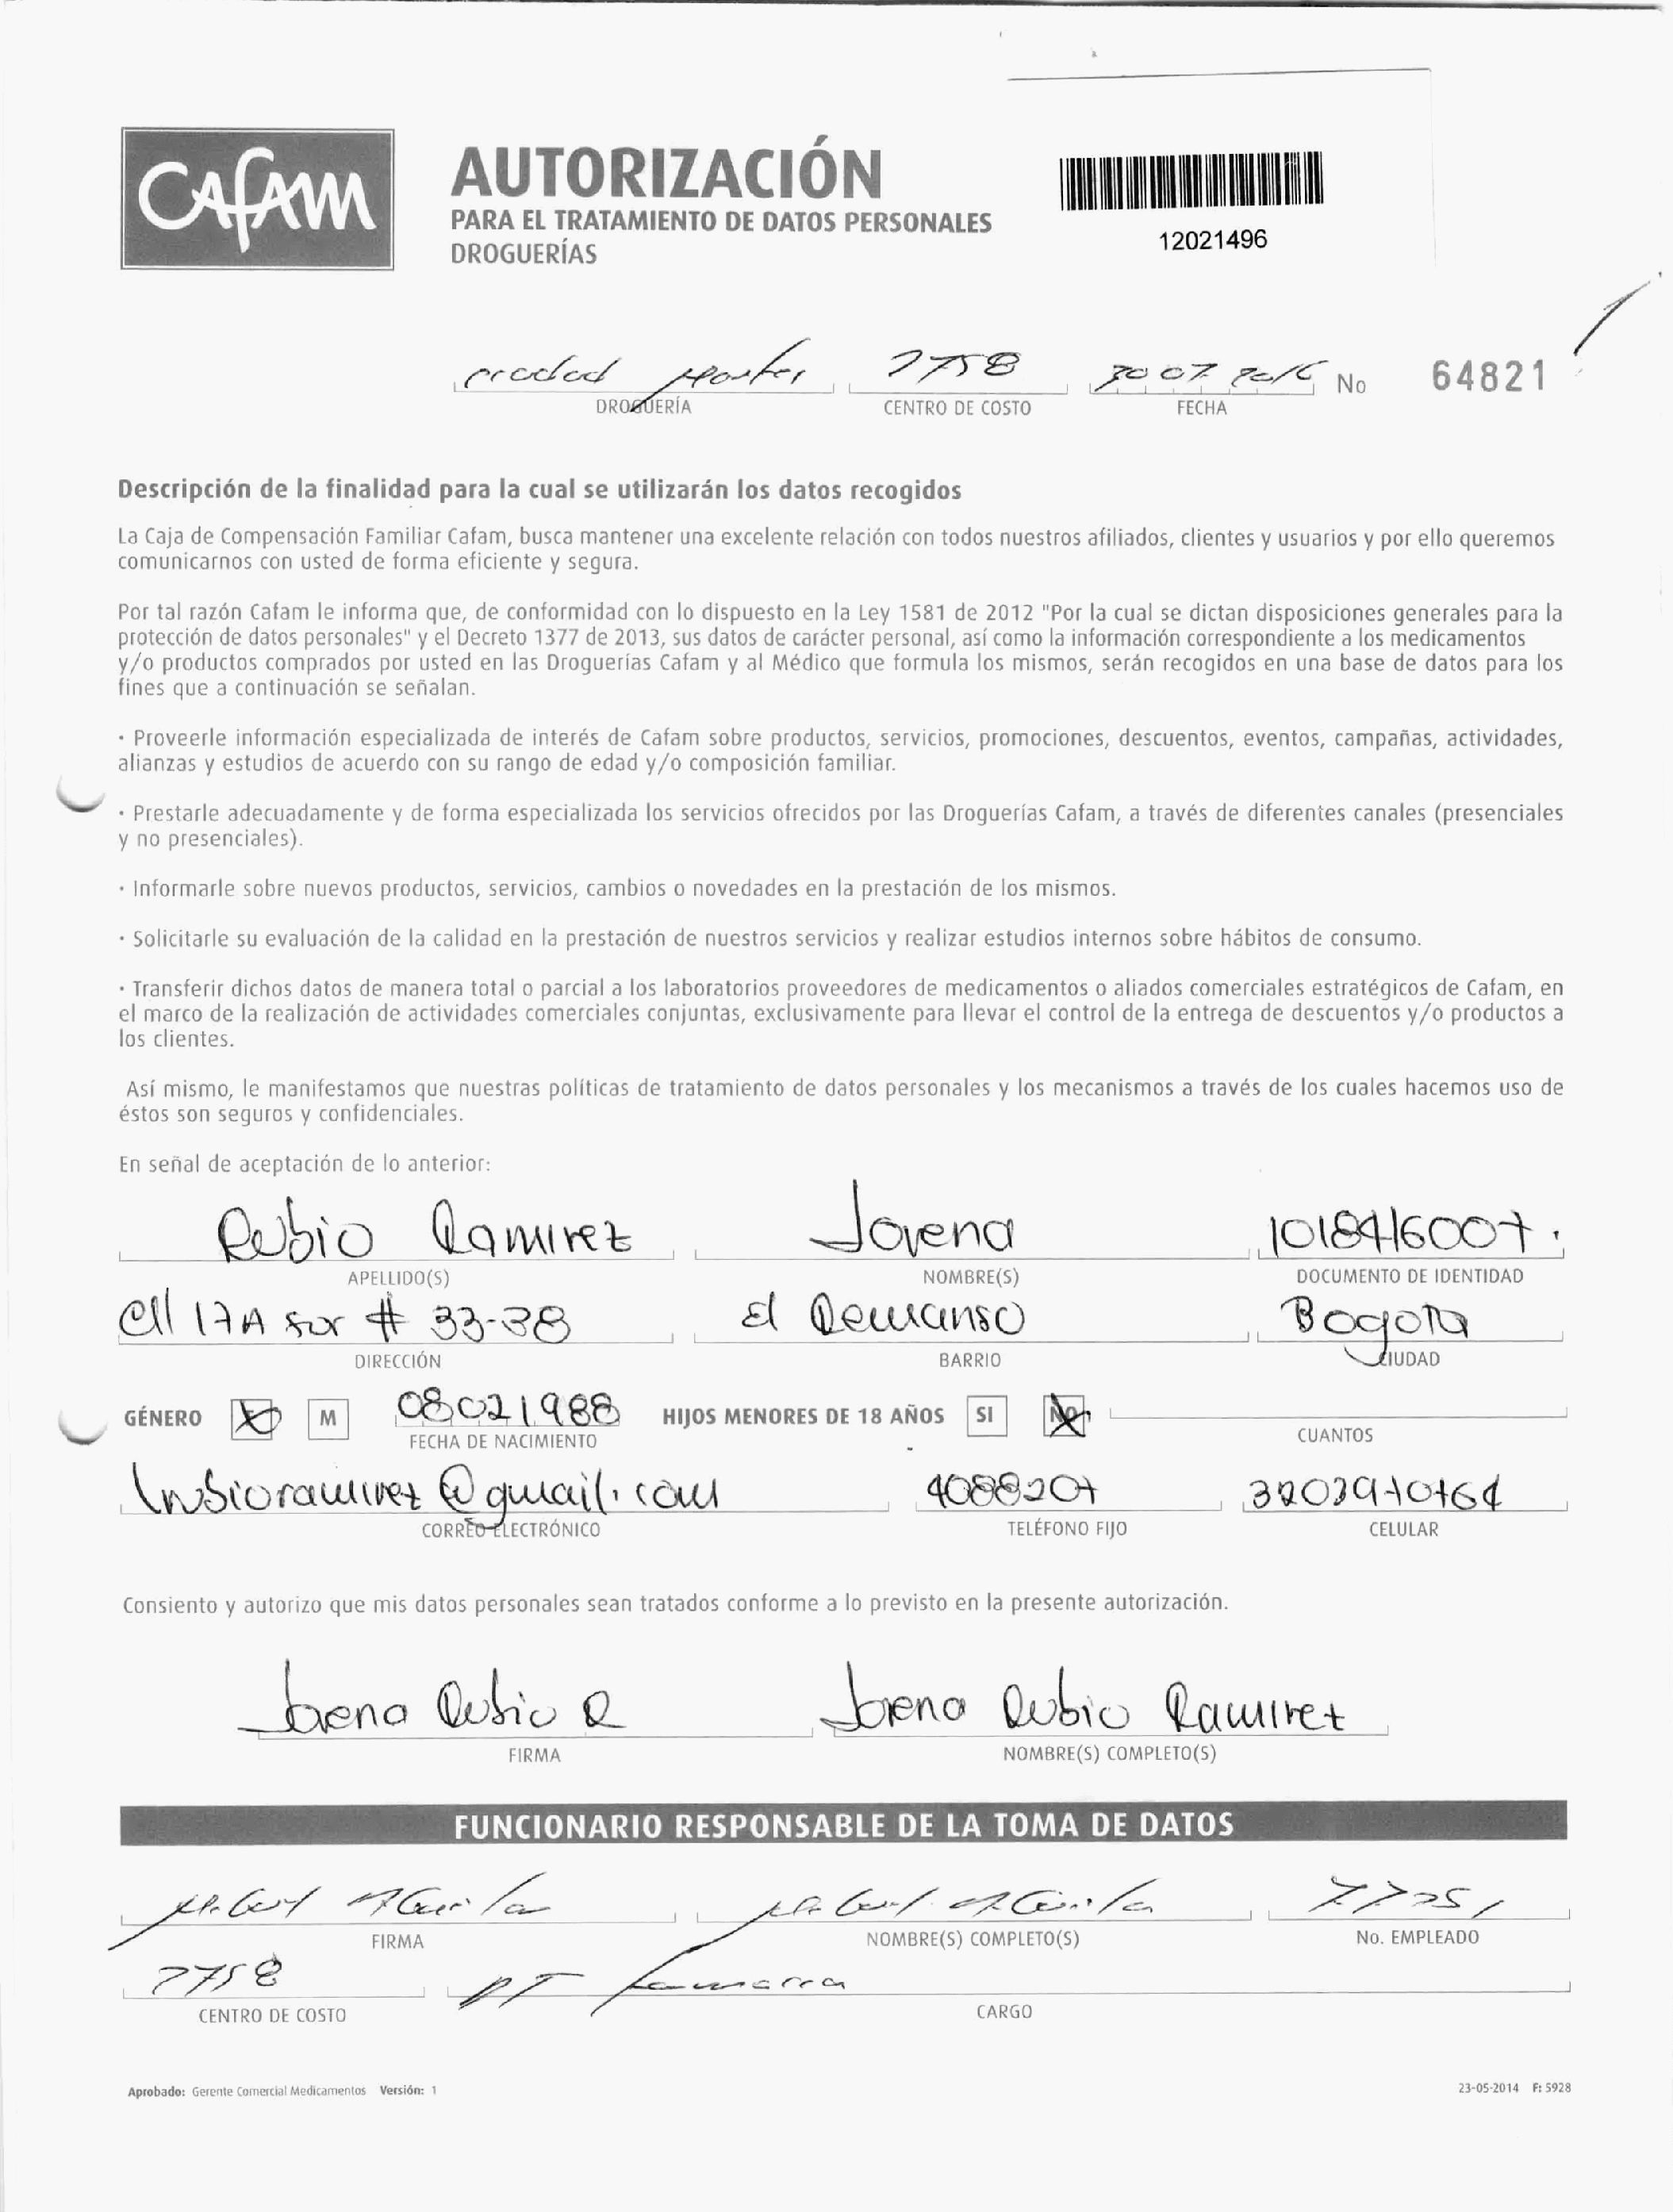 CAFAM
AUTORIZACIÓN
PARA EL TRATAMIENTO DE DATOS PERSONALES
DROGUERÍAS
12021496
7758 30 07 2016 No 64821
DROGUERÍA CENTRO DE COSTO FECHA
Descripción de la finalidad para la cual se utilizarán los datos recogidos
La Caja de Compensación Familiar Cafam, busca mantener una excelente relación con todos nuestros afiliados, clientes y usuarios y por ello queremos
comunicarnos con usted de forma eficiente y segura.
Por tal razón Cafam le informa que, de conformidad con lo dispuesto en la Ley 1581 de 2012 "Por la cual se dictan disposiciones generales para la
protección de datos personales" y el Decreto 1377 de 2013, sus datos de carácter personal, así como la información correspondiente a los medicamentos
y/o productos comprados por usted en las Droguerías Cafam y al Médico que formula los mismos, serán recogidos en una base de datos para los
fines que a continuación se señalan.
· Proveerle información especializada de interés de Cafam sobre productos, servicios, promociones, descuentos, eventos, campañas, actividades,
alianzas y estudios de acuerdo con su rango de edad y/o composición familiar.
· Prestarle adecuadamente y de forma especializada los servicios ofrecidos por las Droguerías Cafam, a través de diferentes canales (presenciales
y no presenciales).
· Informarle sobre nuevos productos, servicios, cambios o novedades en la prestación de los mismos.
· Solicitarle su evaluación de la calidad en la prestación de nuestros servicios y realizar estudios internos sobre hábitos de consumo.
· Transferir dichos datos de manera total o parcial a los laboratorios proveedores de medicamentos o aliados comerciales estratégicos de Cafam, en
el marco de la realización de actividades comerciales conjuntas, exclusivamente para llevar el control de la entrega de descuentos y/o productos a
los clientes.
Así mismo, le manifestamos que nuestras políticas de tratamiento de datos personales y los mecanismos a través de los cuales hacemos uso de
éstos son seguros y confidenciales.
En señal de aceptación de lo anterior:
Rubio Ramirez Lorena 1018416007
APELLIDO(S) NOMBRE(S) DOCUMENTO DE IDENTIDAD
Cll 17A sur # 33-38 El Remanso Bogota
DIRECCIÓN BARRIO CIUDAD
GÉNERO M 08021988 HIJOS MENORES DE 18 AÑOS SI NO
FECHA DE NACIMIENTO CUANTOS
lrubioramirez@gmail.com 4088207
CORREO ELECTRÓNICO TELÉFONO FIJO CELULAR
Consiento y autorizo que mis datos personales sean tratados conforme a lo previsto en la presente autorización.
Lorena Rubio R Lorena Rubio Ramirez
FIRMA NOMBRE(S) COMPLETO(S)
FUNCIONARIO RESPONSABLE DE LA TOMA DE DATOS
FIRMA NOMBRE(S) COMPLETO(S) No. EMPLEADO
7758
CENTRO DE COSTO CARGO
Aprobado: Gerente Comercial Medicamentos Versión: 1 23-05-2014 F: 5928